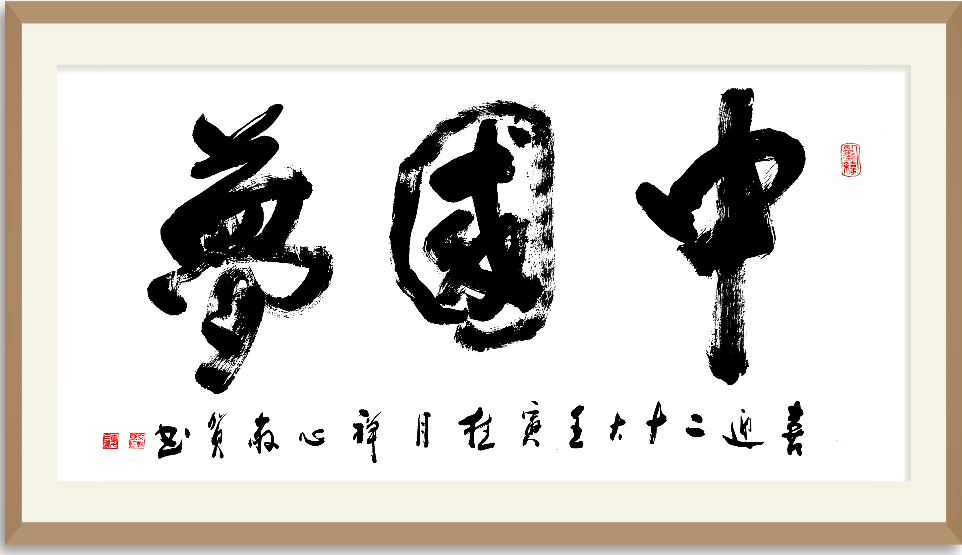 中國夢
喜迎二十大壬寅桂月心敬贺书